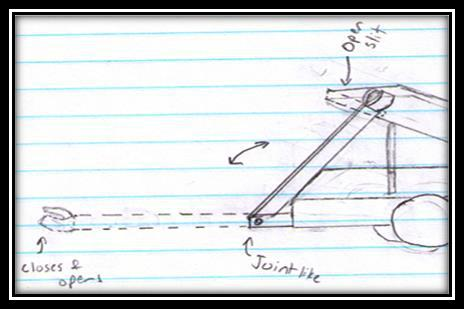 open
slit
closes &
opens
Jointlike